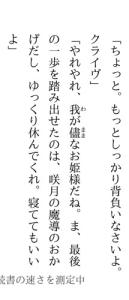 「ちょっと。もっとしっかり背負いなさいよ。
クライヴ」
「やれやれ、我が儘なお姫様だね。ま、最後
の一歩を踏み出せたのは、咲月の魔導のおか
げだし、ゆっくり休んでくれ。寝ててもいい
よ」
読書の速さを測定中